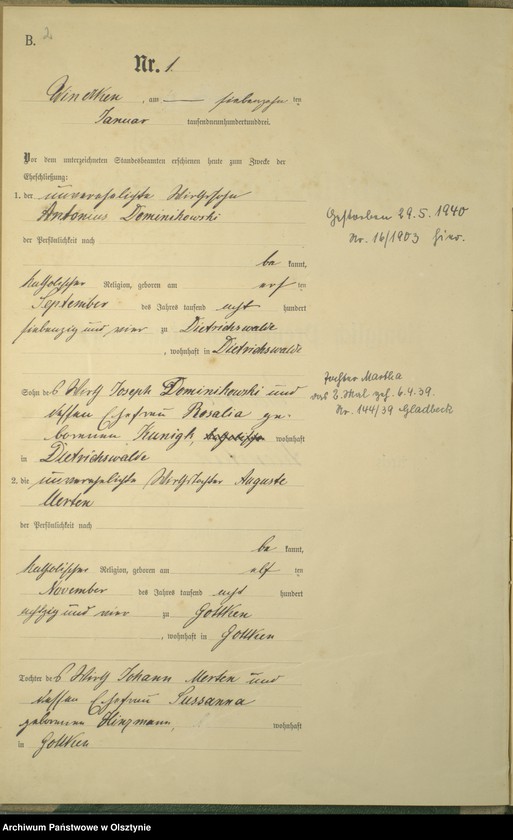 B. 2
Nr. 1.
Windtken, am — siebenzehn ten
Januar tausendneunhundertunddrei.
Vor dem unterzeichneten Standesbeamten erschienen heute zum Zwecke der
Eheschließung:
1. der unverehelichte Wirthssohn
Antonius Dominikowski
der Persönlichkeit nach
be kannt,
katholischer Religion, geboren am elf ten
September des Jahres tausend acht hundert
siebenzig und vier zu Dietrichswalde
, wohnhaft in Dietrichswalde
Sohn des Wirth Joseph Dominikowski und
dessen Ehefrau Rosalia ge-
borenen Kunigk, wohnhaft
in Dietrichswalde
2. die unverehelichte Wirthstochter Auguste
Merten
der Persönlichkeit nach
be kannt,
katholischer Religion, geboren am elf ten
November des Jahres tausend acht hundert
achtzig und vier zu Gottken
, wohnhaft in Gottken
Tochter des Wirth Johann Merten und
dessen Ehefrau Sussanna
geborenen Hinzmann, wohnhaft
in Gottken
Gestorben 29.5.1940
Nr. 16/1903 hier.
Tochter Martha
das 2. Mal geh. 6.4.39.
Nr. 144/39 Gladbeck
Archiwum Państwowe w Olsztynie